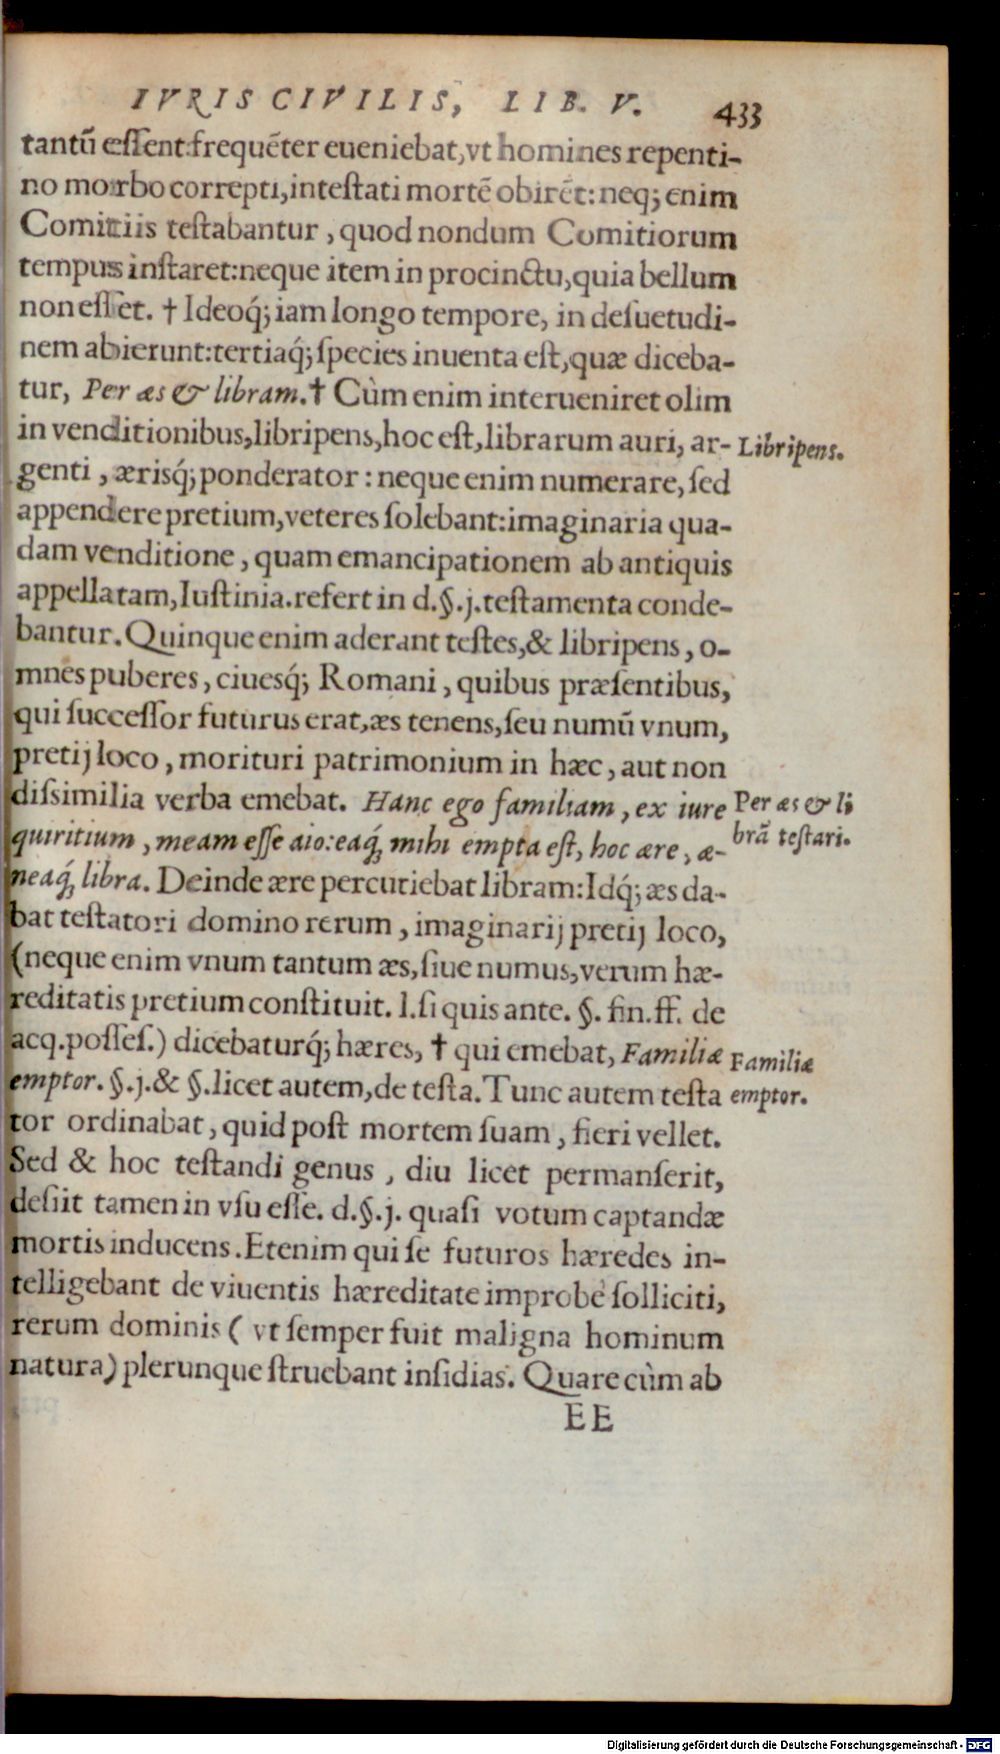 IVRIS CIVILIS, LIB. V. 433
tantũ eſſent:frequẽter eueniebat,vt homines repenti-
no morbo correpti,inteſtati mortẽ obirẽt: neq; enim
Comitiis teſtabantur, quod nondum Comitiorum
tempus inſtaret:neque item in procinctu,quia bellum
non eſſet. † Ideoq́; iam longo tempore, in deſuetudi-
nem abierunt:tertiaq́; ſpecies inuenta eſt,quæ diceba-
tur, Per æs & libram.† Cùm enim interueniret olim
in venditionibus,libripens,hoc eſt,librarum auri, ar-
Libripens.
genti, ærisq́; ponderator: neque enim numerare, ſed
appendere pretium,veteres ſolebant:imaginaria qua-
dam venditione, quam emancipationem ab antiquis
appellatam,Iuſtinia.refert in d.§.j.teſtamenta conde-
bantur. Quinque enim aderant teſtes,& libripens, o-
mnes puberes, ciuesq́; Romani, quibus præſentibus,
qui ſucceſſor futurus erat,æs tenens,ſeu numũ vnum,
pretij loco, morituri patrimonium in hæc, aut non
diſsimilia verba emebat. Hanc ego familiam, ex iure
Per æs & li
quiritium, meam eſſe aio:eaq́; mihi empta eſt, hoc ære, æ-
brã teſtari.
neaq́; libra. Deinde ære percutiebat libram:Idq́; æs da-
bat teſtatori domino rerum, imaginarij pretij loco,
(neque enim vnum tantum æs,ſiue numus,verum hæ-
reditatis pretium conſtituit. l.ſi quis ante. §. fin.ff. de
acq.poſſeſ.) dicebaturq́; hæres, † qui emebat, Familiæ
Familiæ
emptor. §.j.& §.licet autem,de teſta. Tunc autem teſta
emptor.
tor ordinabat, quid poſt mortem ſuam, fieri vellet.
Sed & hoc teſtandi genus, diu licet permanſerit,
deſiit tamen in vſu eſſe. d.§.j. quaſi votum captandæ
mortis inducens. Etenim qui ſe futuros hæredes in-
telligebant de viuentis hæreditate improbè ſolliciti,
rerum dominis ( vt ſemper fuit maligna hominum
natura) plerunque ſtruebant inſidias. Quare cùm ab
EE
Digitalisierung gefördert durch die Deutsche Forschungsgemeinschaft - DFG